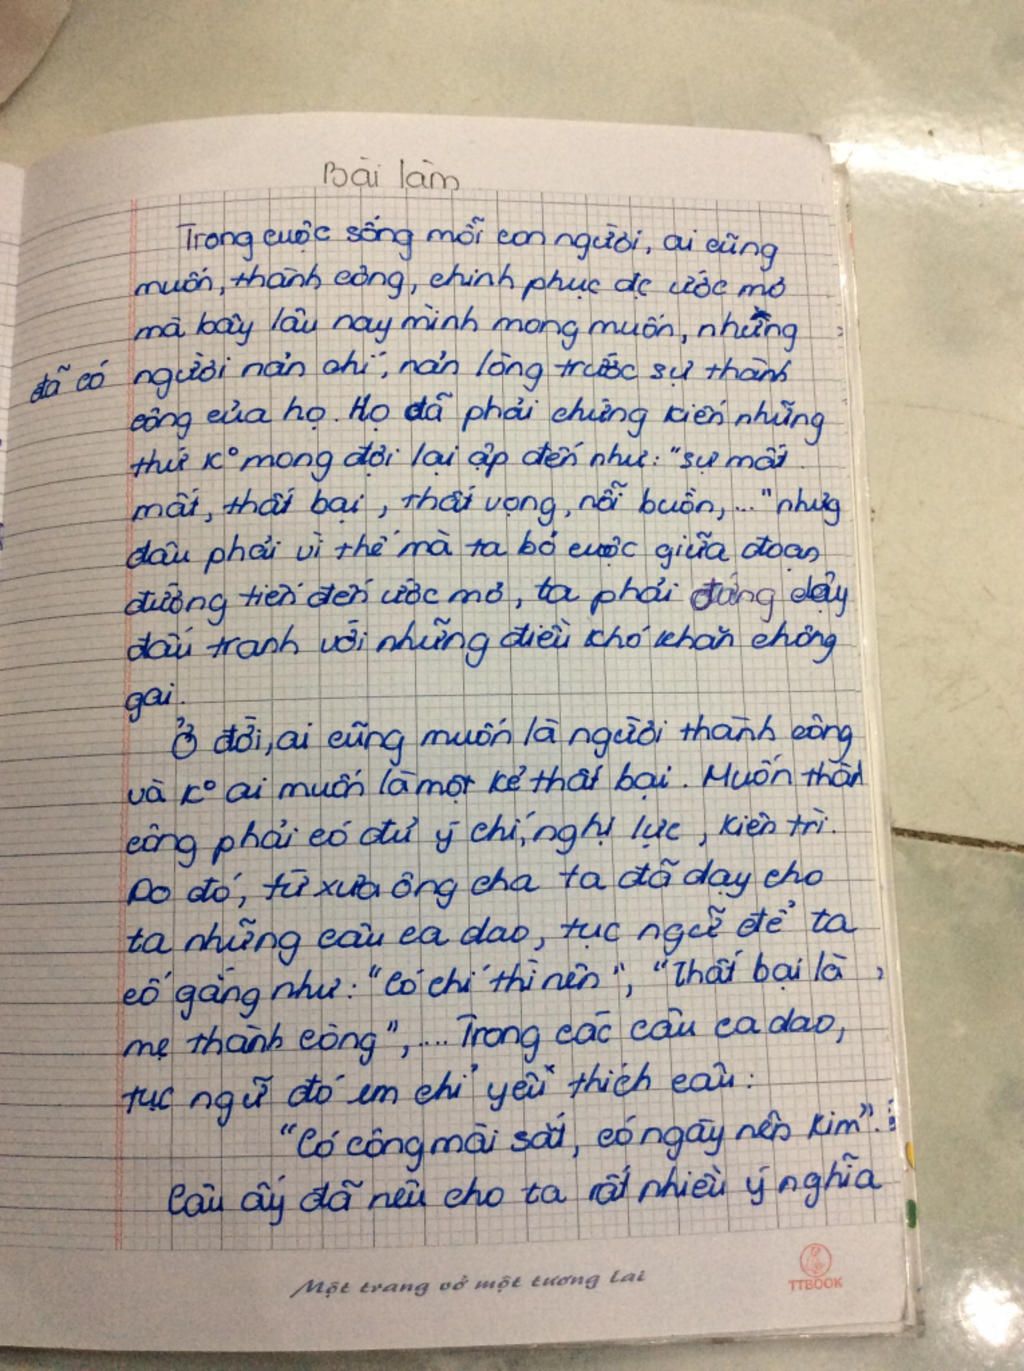 Bài làm
Trong cuộc sống mỗi con người, ai cũng
muốn, thành công, chinh phục đc ước mơ
mà bấy lâu nay mình mong muốn, nhưng
đã có người nản chí, nản lòng trước sự thành
công của họ. Họ đã phải chứng kiến những
thứ K° mong đợi lại ập đến như: "sự mất
mát, thất bại, thất vọng, nỗi buồn,..." nhưng
đâu phải vì thế mà ta bỏ cuộc giữa đoạn
đường tiến đến ước mơ, ta phải đứng dậy
đấu tranh với những điều khó khăn chông
gai.
Ở đời, ai cũng muốn là người thành công
và K° ai muốn là một kẻ thất bại. Muốn thành
công phải có đủ ý chí, nghị lực, kiên trì.
Do đó, từ xưa ông cha ta đã dạy cho
ta những câu ca dao, tục ngữ để ta
cố gắng như: "Có chí thì nên", "Thất bại là
mẹ thành công",... Trong các câu ca dao,
tục ngữ đó em chỉ yêu thích câu:
"Có công mài sắt, có ngày nên kim".
Câu ấy đã nêu cho ta rất nhiều ý nghĩa
Một trang vở một tương lai
TTBOOK